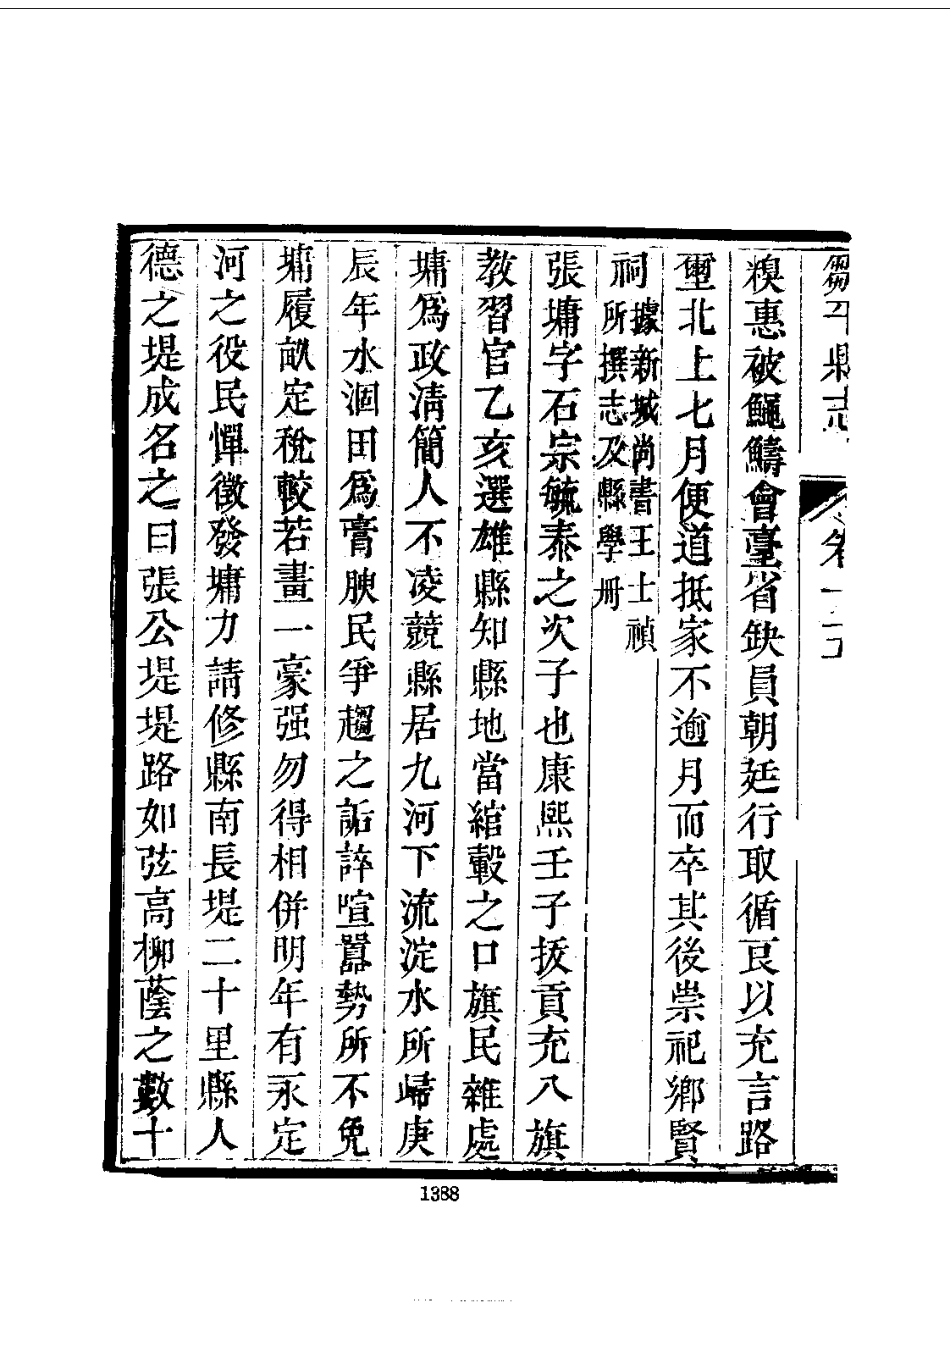 鄒平縣志
卷十五
糗惠被鰋鱔會臺省缺員朝廷行取循良以充言路
壐北上七月便道抵家不逾月而卒其後崇祀鄉賢
祠據新城尚書王士禎所撰志及縣學冊
張墉字石宗毓泰之次子也康熙壬子拔貢充八旗
教習官乙亥選雄縣知縣地當綰轂之口旗民雜處
墉爲政淸簡人不凌競縣居九河下流淀水所歸庚
辰年水涸田爲膏腴民爭趨之詬誶喧囂勢所不免
墉履畝定稅較若畫一豪强勿得相併明年有永定
河之役民憚徵發墉力請修縣南長堤二十里縣人
德之堤成名之曰張公堤堤路如弦高柳蔭之數十
1388